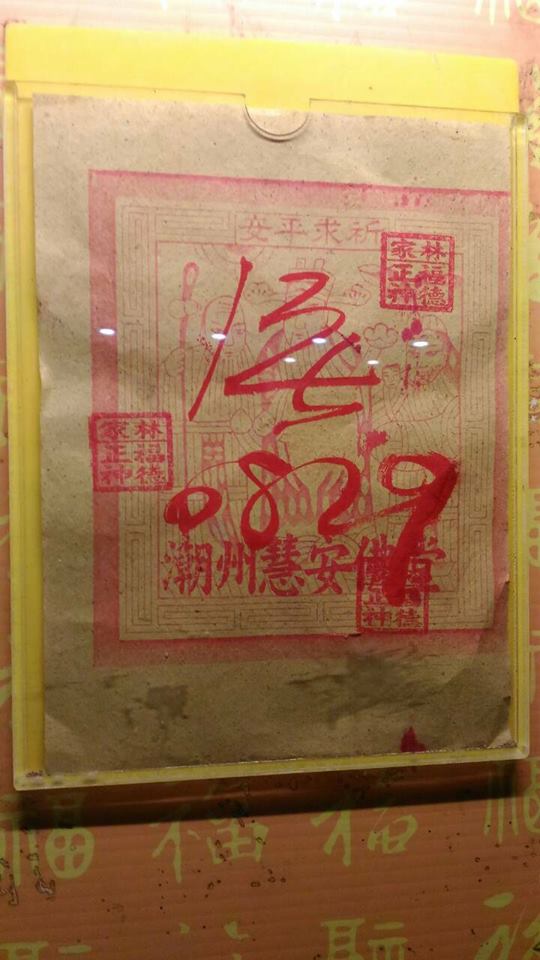 祈求平安
林家
福德
正神
林家
福德
正神
0829
潮州慧安佛堂
福 福 福